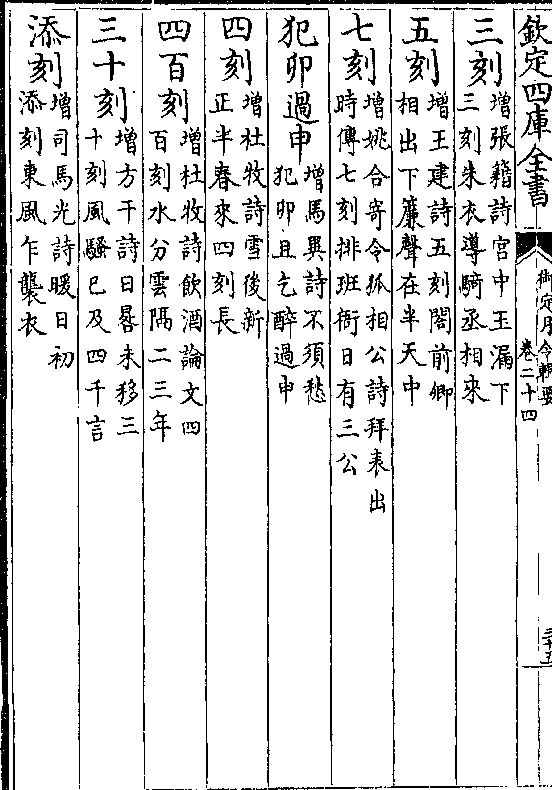 欽定四庫全書
御定月令輯要
卷二十四
三十五
三刻
增張籍詩宮中玉漏下
三刻朱衣導騎丞相來
五刻
增王建詩五刻閣前卿
相出下簾聲在半天中
七刻
增姚合寄令狐相公詩拜表出
時傳七刻排班衙日有三公
犯卯過申
增馬異詩不須愁
犯卯且乞醉過申
四刻
增杜牧詩雪後新
正半春來四刻長
四百刻
增杜牧詩飲酒論文四
百刻水分雲隔二三年
三十刻
增方干詩日晷未移三
十刻風騷已及四千言
添刻
增司馬光詩暖日初
添刻東風乍襲衣